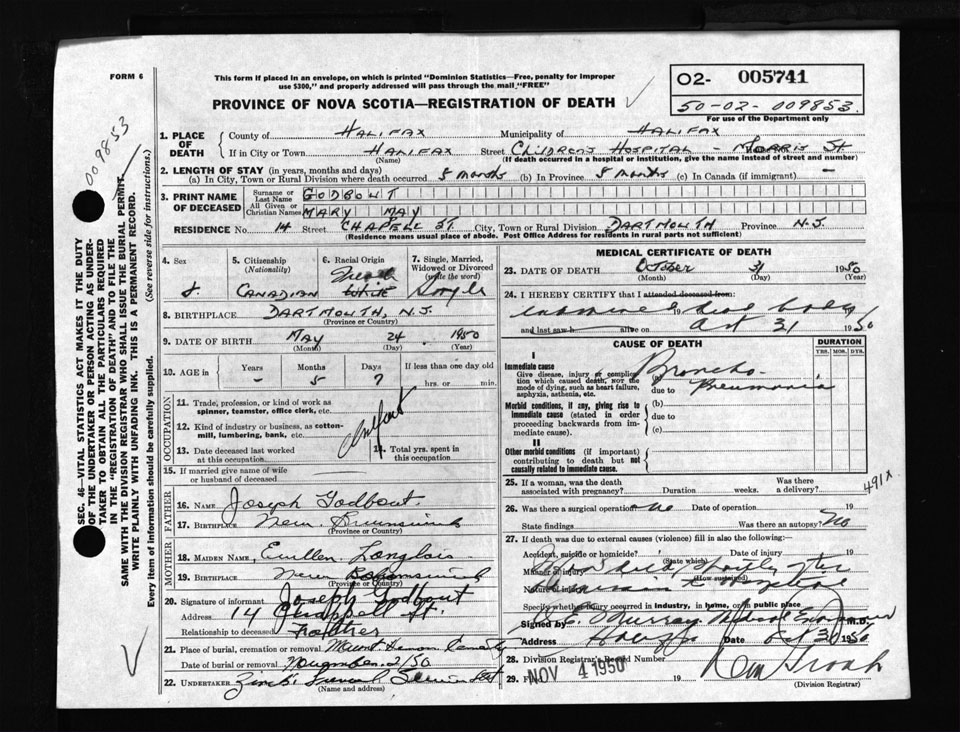 FORM 6
This form if placed in an envelope, on which is printed "Dominion Statistics—Free, penalty for improper
use $300," and properly addressed will pass through the mail "FREE"
PROVINCE OF NOVA SCOTIA—REGISTRATION OF DEATH
02- 005741
50-02-009853
For use of the Department only
009853
SEC. 46—VITAL STATISTICS ACT MAKES IT THE DUTY
OF THE UNDERTAKER OR PERSON ACTING AS UNDER-
TAKER TO OBTAIN ALL THE PARTICULARS REQUIRED
IN THE "REGISTRATION OF DEATH" AND TO FILE THE
SAME WITH THE DIVISION REGISTRAR WHO SHALL ISSUE THE BURIAL PERMIT.
WRITE PLAINLY WITH UNFADING INK. THIS IS A PERMANENT RECORD.
Every item of information should be carefully supplied. (See reverse side for instructions.)
1. PLACE OF DEATH
County of HALIFAX Municipality of HALIFAX
If in City or Town HALIFAX Street CHILDREN'S HOSPITAL - MORRIS St
(Name) (If death occurred in a hospital or institution, give the name instead of street and number)
2. LENGTH OF STAY (in years, months and days)
(a) In City, Town or Rural Division where death occurred 5 months (b) In Province 5 months (c) In Canada (if immigrant) —
3. PRINT NAME OF DECEASED
Surname or Last Name GODBOUT
All Given or Christian Names MARY MAY
RESIDENCE No. 14 Street CHAPELL ST City, Town or Rural Division DARTMOUTH Province N.S.
(Residence means usual place of abode. Post Office Address for residents in rural parts not sufficient)
4. Sex
f.
5. Citizenship
(Nationality)
CANADIAN
6. Racial Origin
French
White
7. Single, Married,
Widowed or Divorced
(write the word)
Single
8. BIRTHPLACE DARTMOUTH, N.S.
(Province or Country)
9. DATE OF BIRTH MAY 24 1950
(Month) (Day) (Year)
10. AGE in Years Months Days If less than one day old
— 5 7 hrs. or min.
OCCUPATION
11. Trade, profession, or kind of work as
spinner, teamster, office clerk, etc.
12. Kind of industry or business, as cotton-
mill, lumbering, bank, etc.
Infant
13. Date deceased last worked
at this occupation
14. Total yrs. spent in
this occupation
15. If married give name of wife
or husband of deceased
FATHER
16. NAME Joseph Godbout
17. BIRTHPLACE New Brunswick
(Province or Country)
MOTHER
18. MAIDEN NAME Langlois
19. BIRTHPLACE New Brunswick
(Province or Country)
20. Signature of informant Joseph Godbout
Address 14 Chappell St.
Relationship to deceased Father
21. Place of burial, cremation or removal Mount Cemetery
Date of burial or removal November 2/50
22. UNDERTAKER Zink's Funeral Service
(Name and address)
MEDICAL CERTIFICATE OF DEATH
23. DATE OF DEATH October 31 1950
(Month) (Day) (Year)
24. I HEREBY CERTIFY that I attended deceased from:
examined dead body 19
and last saw h alive on Oct 31 1950
CAUSE OF DEATH
DURATION
YRS. MOS. DYS.
I
Immediate cause
Give disease, injury or complica-
tion which caused death, NOT the
mode of dying, such as heart failure,
asphyxia, asthenia, etc.
(a) Broncho-
due to Pneumonia
Morbid conditions, if any, giving rise to
immediate cause (stated in order
proceeding backwards from im-
mediate cause).
(b)
due to
(c)
II
Other morbid conditions (if important)
contributing to death but not
causally related to immediate cause.
25. If a woman, was the death
associated with pregnancy? Duration weeks. Was there
a delivery?
491x
26. Was there a surgical operation No Date of operation 19
State findings Was there an autopsy? No
27. If death was due to external causes (violence) fill in also the following:—
Accident, suicide or homicide? Date of injury 19
(State which)
Manner of injury died shortly after
(How sustained)
Nature of injury admission to hospital
Specify whether injury occurred in industry, in home, or in public place
Signed by E. Murray Medical Examiner M.D.
Address Halifax Date Oct 31 1950
28. Division Registrar's Record Number
29. NOV 4 1950 19
(Division Registrar)